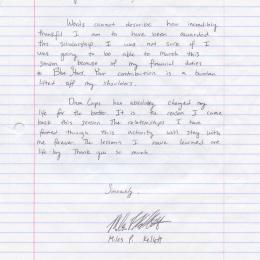 Words cannot describe how incredibly
thankful I am to have been awarded
this scholarship. I was not sure if I
was going to be able to march this
season because of my financial duties
to Blue Steel. Your contribution is a burden
lifted off my shoulders.
Drum Corps has absolutely changed my
life for the better. It is the reason I came
back this season. The relationships I have
formed through this activity will stay with
me forever. The lessons I have learned are
life long. Thank you so much.
Sincerely,
Miles P. Kellett